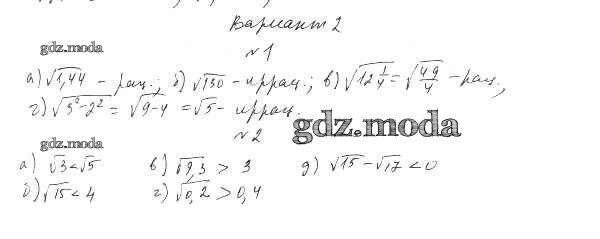 Вариант 2
gdz.moda
№1
а) √1,44 - рац.; б) √130 - иррац.; в) √12 1/4 = √49/4 - рац.,
г) √3²-2² = √9-4 = √5 - иррац.
№2
gdz.moda
gdz.moda
а) √3 < √5 в) √9,3 > 3 д) √15 - √17 < 0
б) √15 < 4 г) √0,2 > 0,4